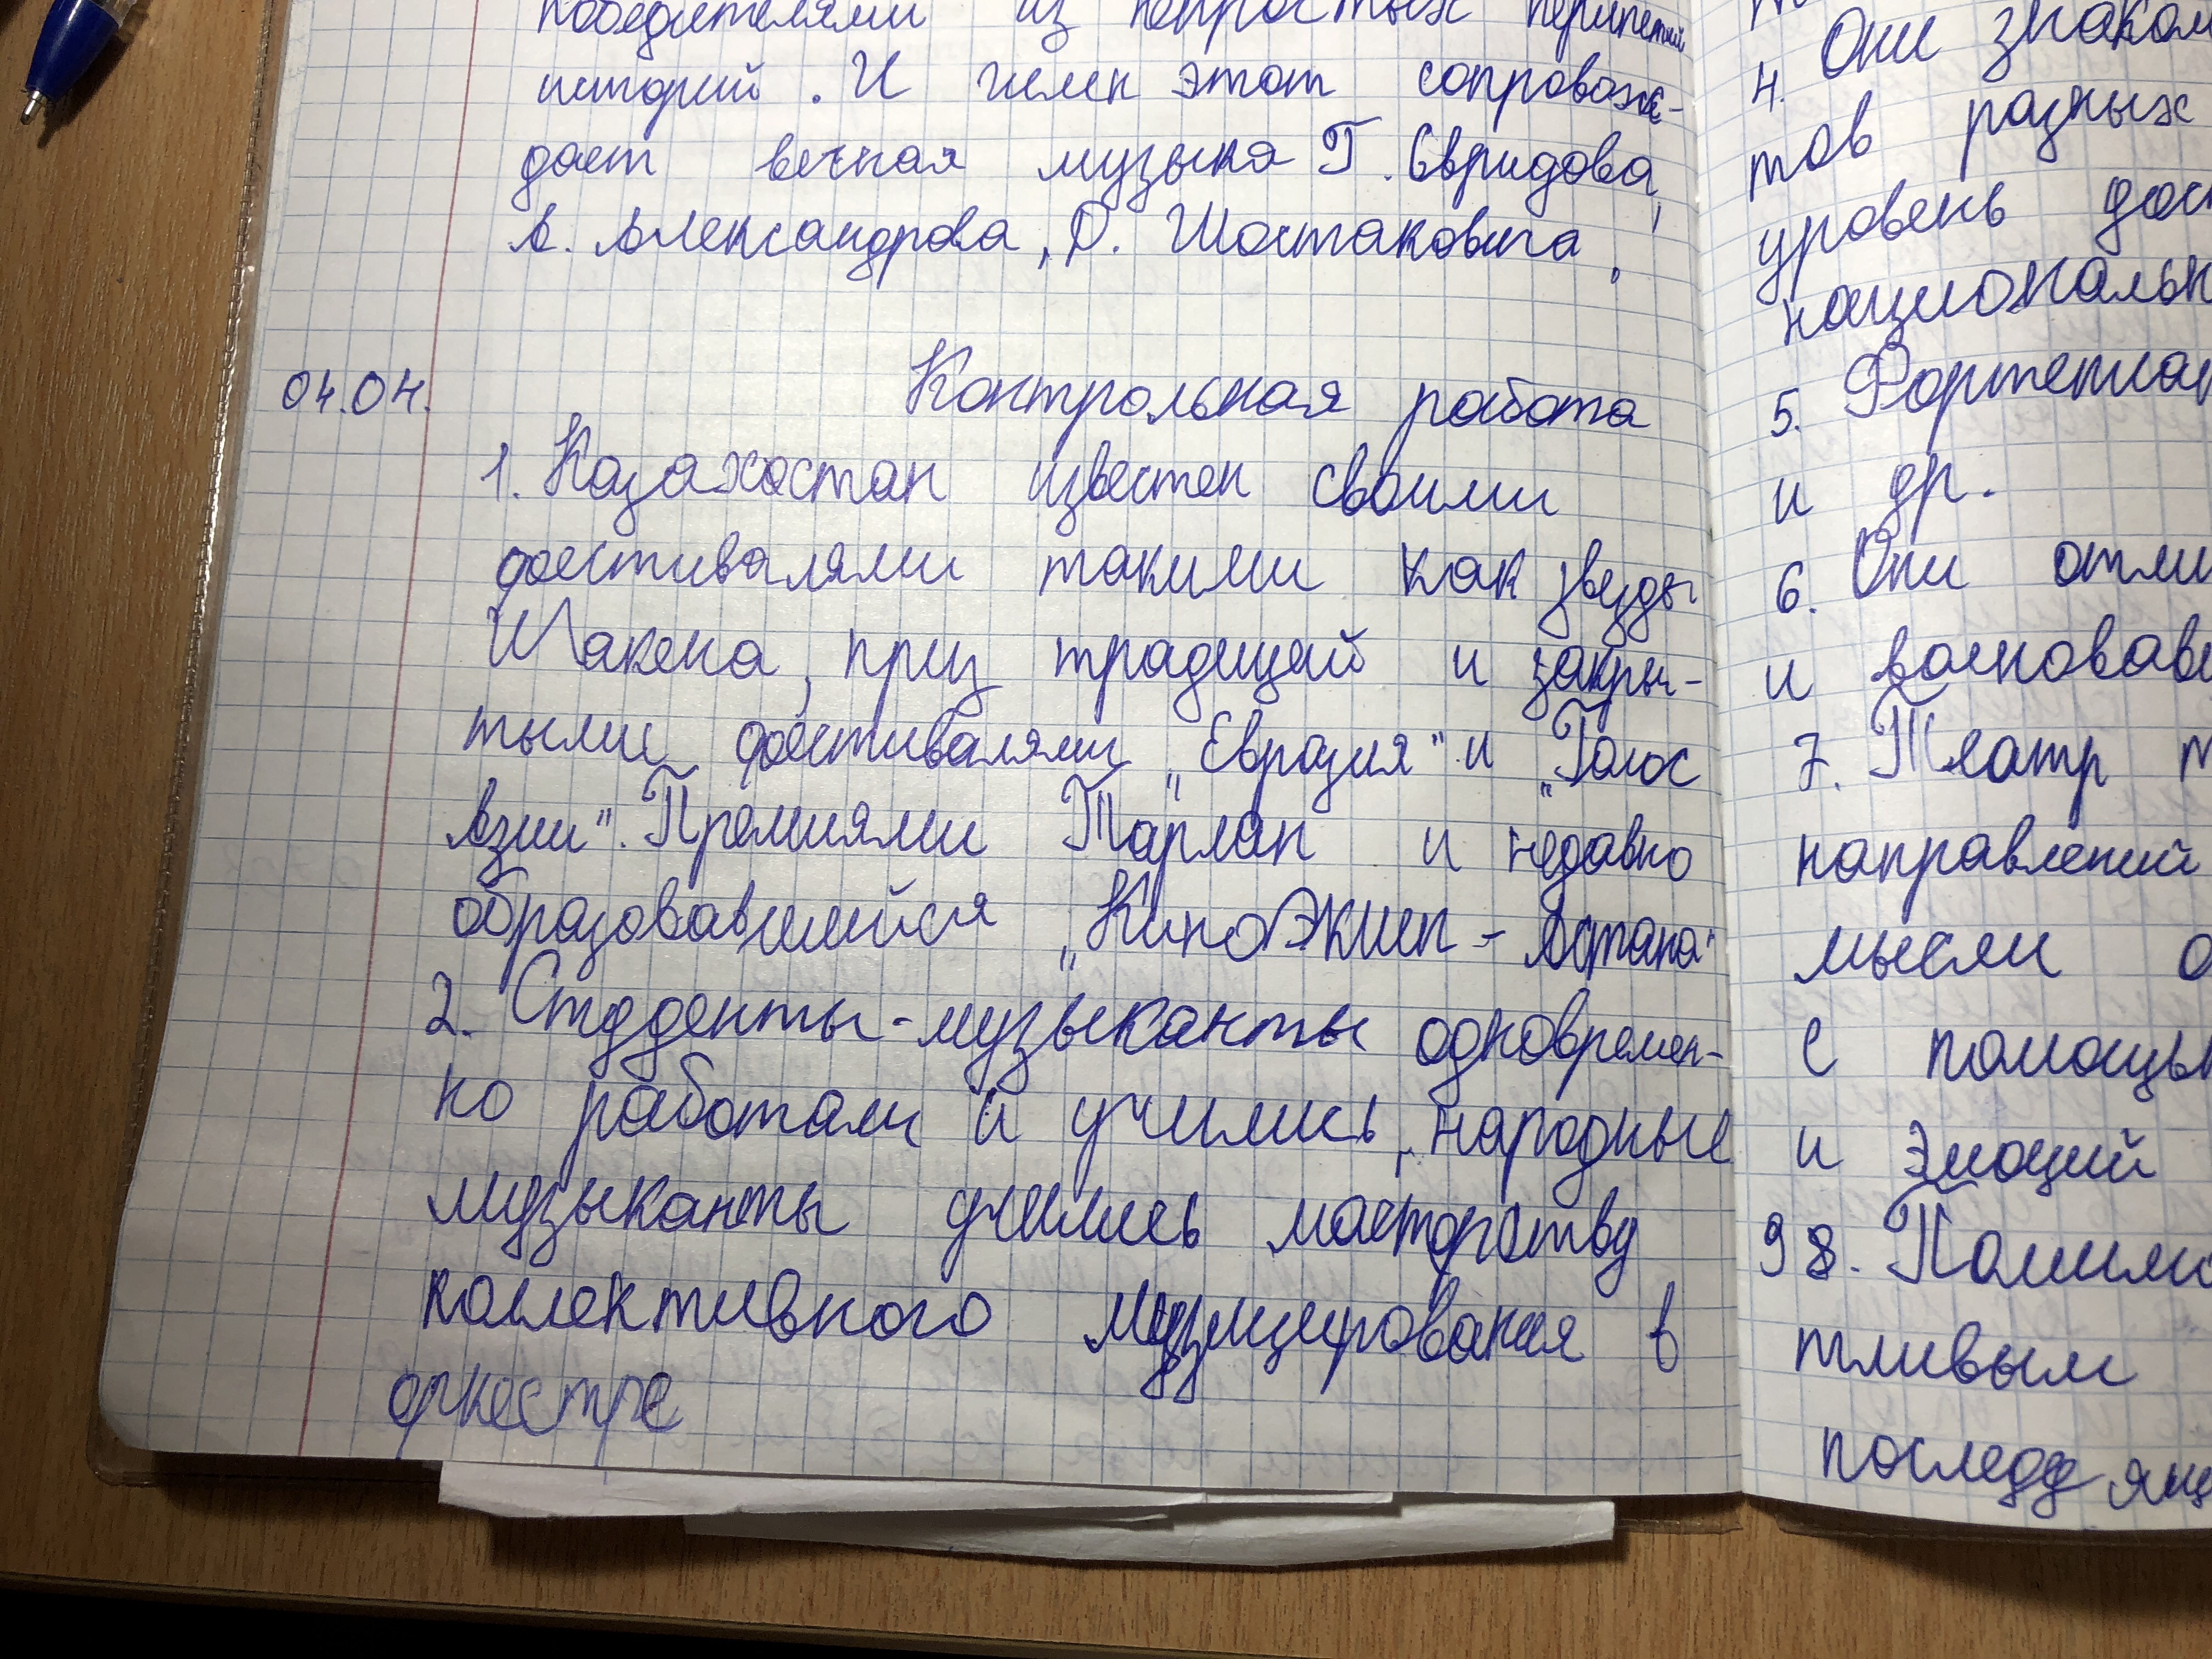 победителями из непростых перипетий
историй. И гимн этот сопровож-
дает вечная музыка Г. Свридова,
А. Александрова, Д. Шостаковича.
04.04. Контрольная работа
1. Казахостан известен своими
фестивалями такими как звезды
Шакена, приз традиций и закры-
тыми фестивалями „Евразия" и „Голос
Азии". Премиями Тарлан и недавно
образовавшийся „КиноЭкшен - Астана"
2. Студенты-музыканты одновремен-
но работали и учились, народные
музыканты учились мастерству
коллективного музицирования в
оркестре
4. Они знаком
тов разных
уровень дос
националь
5. Фортепиан
и др.
6. Они отли
и
7. Театр
направлений
мысли о
с помощь
и эмоций
98. Помимо
тливым
последу ящ